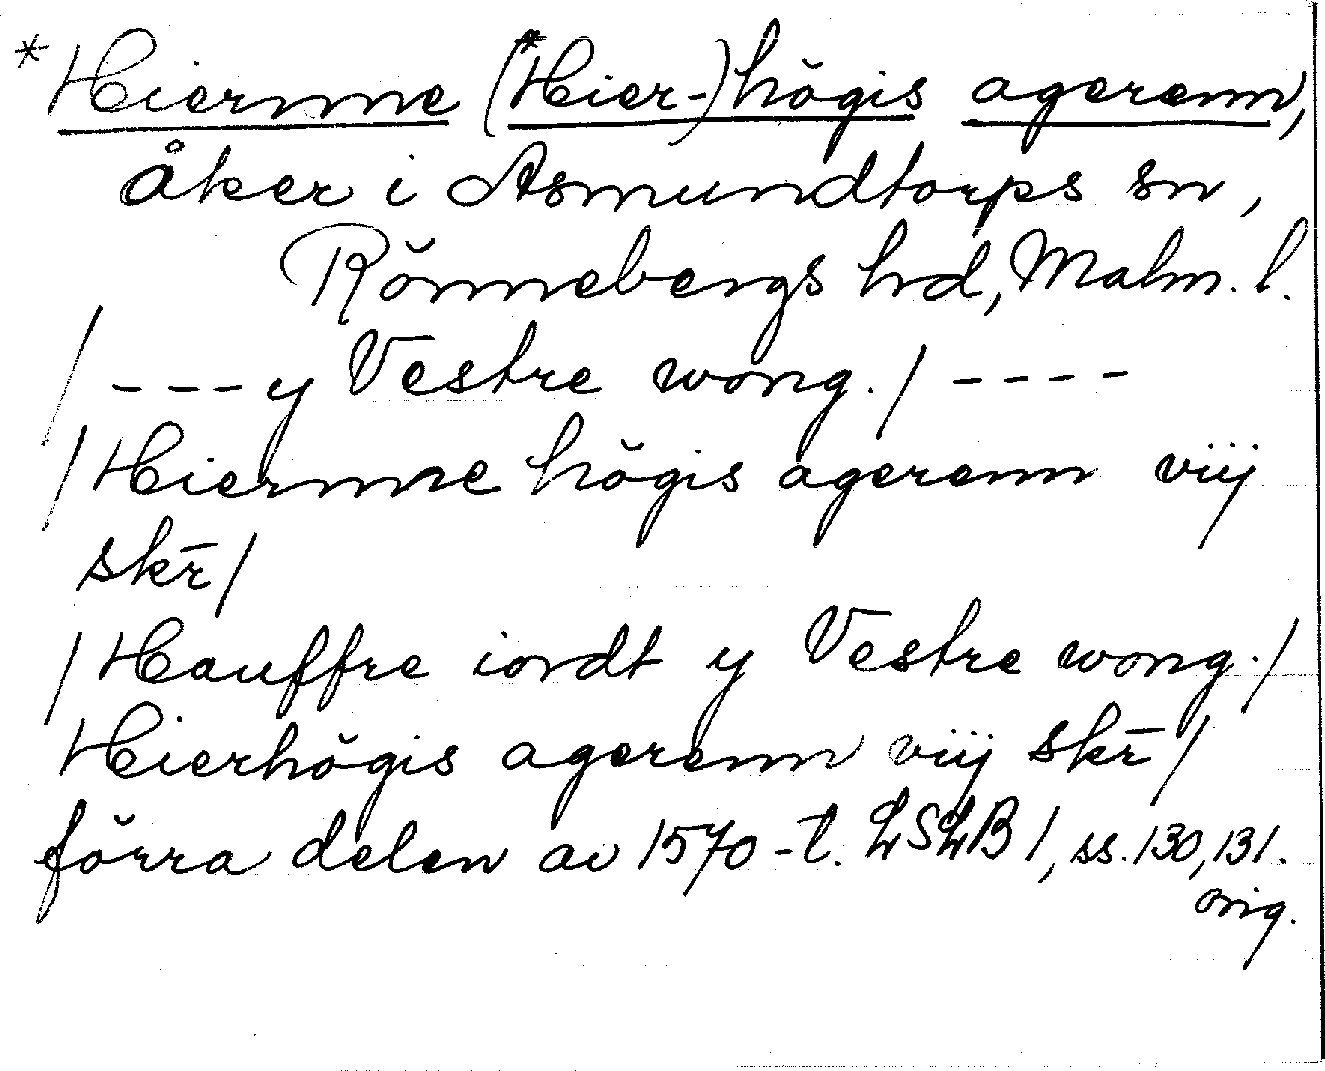 *Hiernne (*Hier-)högis agerenn,
åker i Asmundtorps sn,
Rönnebergs hrd, Malm. l.
/ ---y Vestre wong. / ----
/ Hiernne högis agerenn viij
skr̄ /
/ Hauffre iordt y Vestre wong. /
Hierhögis agerenn viij skr̄ /
förra delen av 1570-t. LSLB 1, ss. 130, 131.
orig.